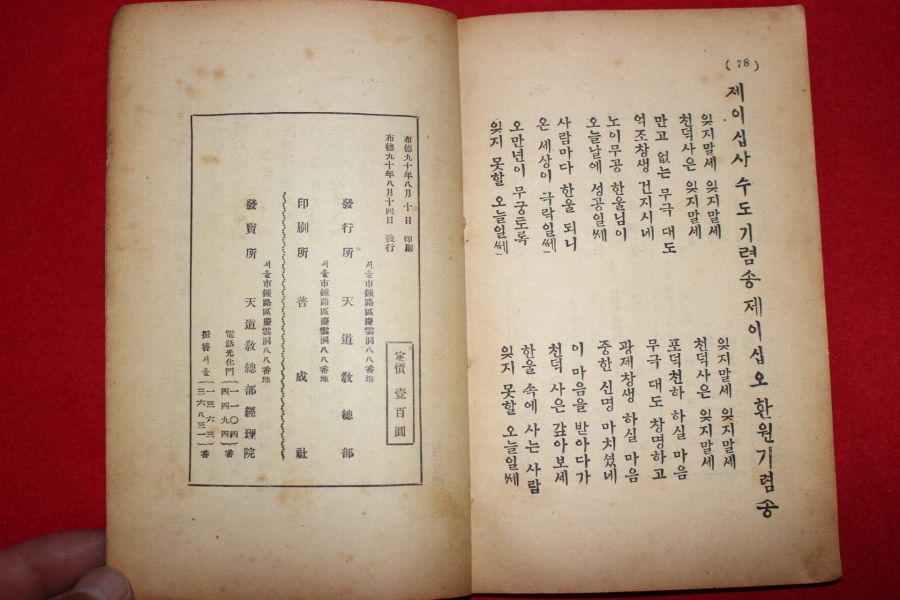 (78)
제이십사 수도기렴송
잊지말세 잊지말세
천덕사은 잊지말세
만고 없는 무극 대도
억조창생 건지시네
노이무공 한울님이
오늘날에 성공일쎄
사람마다 한울 되니
온 세상이 극락일쎄
오만년이 무궁토록
잊지 못할 오늘일쎄
제이십오 환원기렴송
잊지말세 잊지말세
천덕사은 잊지말세
포덕천하 하실 마음
무극 대도 창명하고
광제창생 하실 마음
중한 신명 마치셨네
이 마음을 받아다가
천덕 사은 갚아보세
한울 속에 사는 사람
잊지 못할 오늘일쎄
布德九十年八月十日 印刷
布德九十年八月十四日 發行
定價 壹百圓
서울市鍾路區慶雲洞八八番地
發行所 天道敎總部
서울市鍾路區慶雲洞八八番地
印刷所 普成社
서울市鍾路區慶雲洞八八番地
發賣所 天道敎總部經理院
電話光化門 (一一〇四 四四九四) 番
振替서울 (一三六三 三六八三一) 番